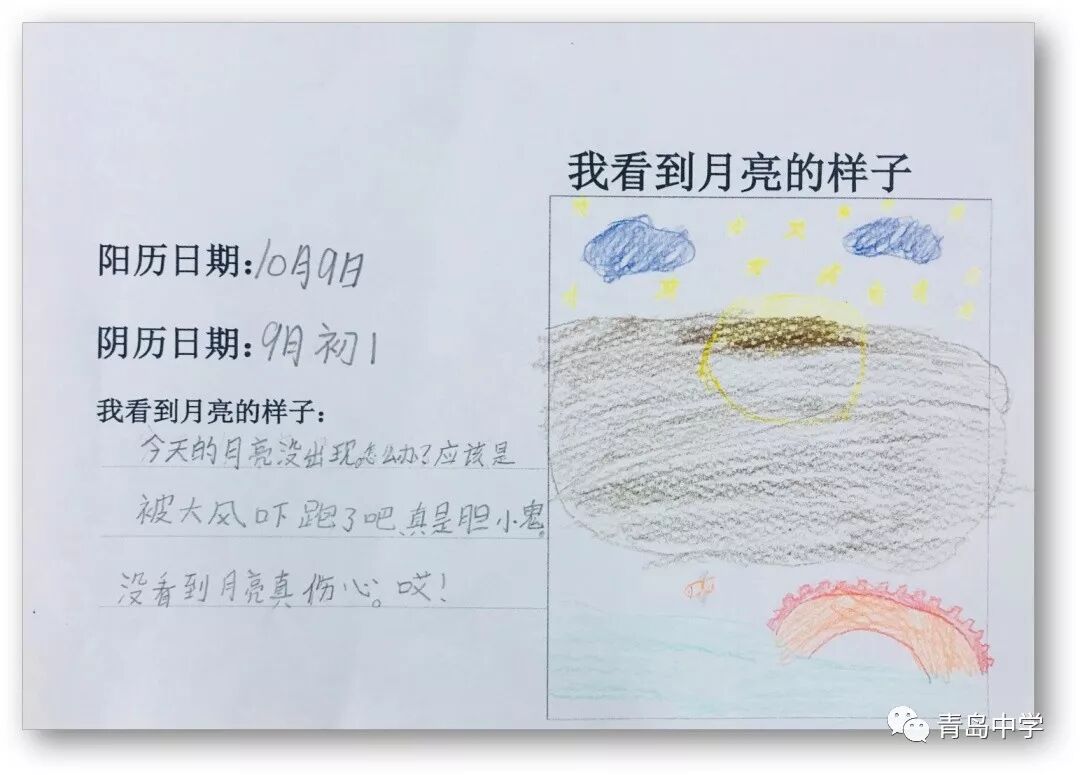 我看到月亮的样子
阳历日期:10月9日
阴历日期:9月初1
我看到月亮的样子:
今天的月亮没出现。怎么办?应该是
被大风吓跑了吧,真是胆小鬼。
没看到月亮真伤心。哎!
青岛中学